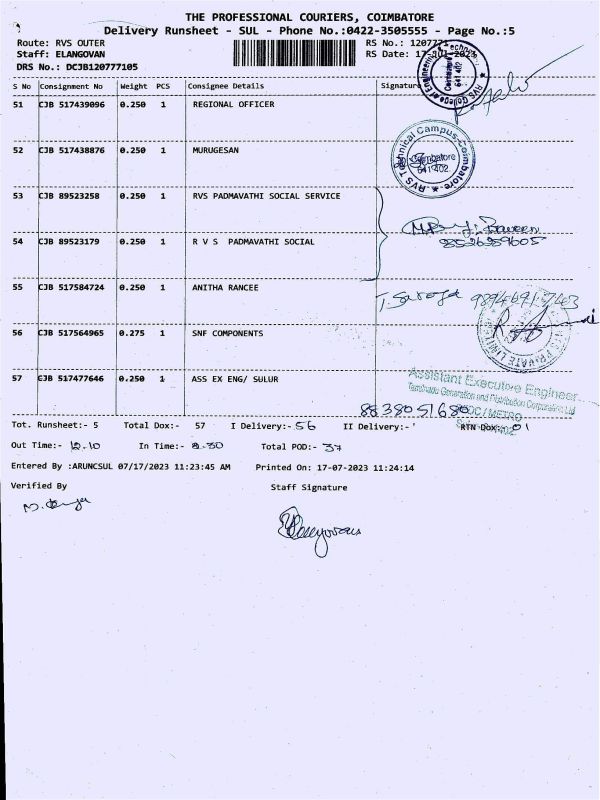 THE PROFESSIONAL COURIERS, COIMBATORE
Delivery Runsheet - SUL - Phone No.:0422-3505555 - Page No.:5
Route: RVS OUTER
RS No.:
Staff: ELANGOVAN
RS Date: 17-JUL-2023
DRS No.: DCJB120777105
S No Consignment No Weight PCS Consignee Details Signature
51 CJB 517439096 0.250 1 REGIONAL OFFICER
52 CJB 517438876 0.250 1 MURUGESAN
RVS Technical Campus-Coimbatore
Coimbatore
641 402
53 CJB 89523258 0.250 1 RVS PADMAVATHI SOCIAL SERVICE
54 CJB 89523179 0.250 1 R V S PADMAVATHI SOCIAL
9526289605
55 CJB 517584724 0.250 1 ANITHA RANCEE
T. Saroja
56 CJB 517564965 0.275 1 SNF COMPONENTS
57 CJB 517477646 0.250 1 ASS EX ENG/ SULUR
Assistant Executive Engineer
Tamilnadu Generation and Distribution Corporation Ltd
Tot. Runsheet:- 5 Total Dox:- 57 I Delivery:- 56 II Delivery:- RTN Dox:- 01
Out Time:- 12.10 In Time:- 2.30 Total POD:- 37
Entered By :ARUNCSUL 07/17/2023 11:23:45 AM Printed On: 17-07-2023 11:24:14
Verified By Staff Signature